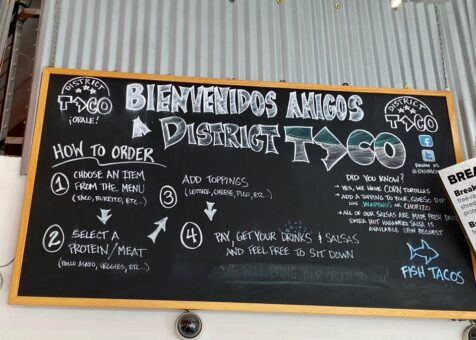 DISTRICT
TACO
¡ORALE!
BIENVENIDOS AMIGOS
A DISTRICT TACO
DISTRICT
TACO
FOLLOW US
HOW TO ORDER
1 CHOOSE AN ITEM
FROM THE MENU
(TACO, BURRITO, ETC...)
2 SELECT A
PROTEIN/MEAT
(POLLO ASADO, VEGGIES, ETC...)
3 ADD TOPPINGS
(LETTUCE, CHEESE, PICO, ETC...)
4 PAY, GET YOUR DRINKS & SALSAS
AND FEEL FREE TO SIT DOWN
WE WILL BRING YOUR ORDER TO YOU!
DID YOU KNOW?
YES, WE HAVE CORN TORTILLAS
ADD A TOPPING TO YOUR QUESO DIP
LIKE JALAPENOS OR CHORIZO
ALL OF OUR SALSAS ARE MADE FRESH DAILY
EXTRA HOT HABANERO SALSA IS
AVAILABLE UPON REQUEST
FISH TACOS
BREA
Break